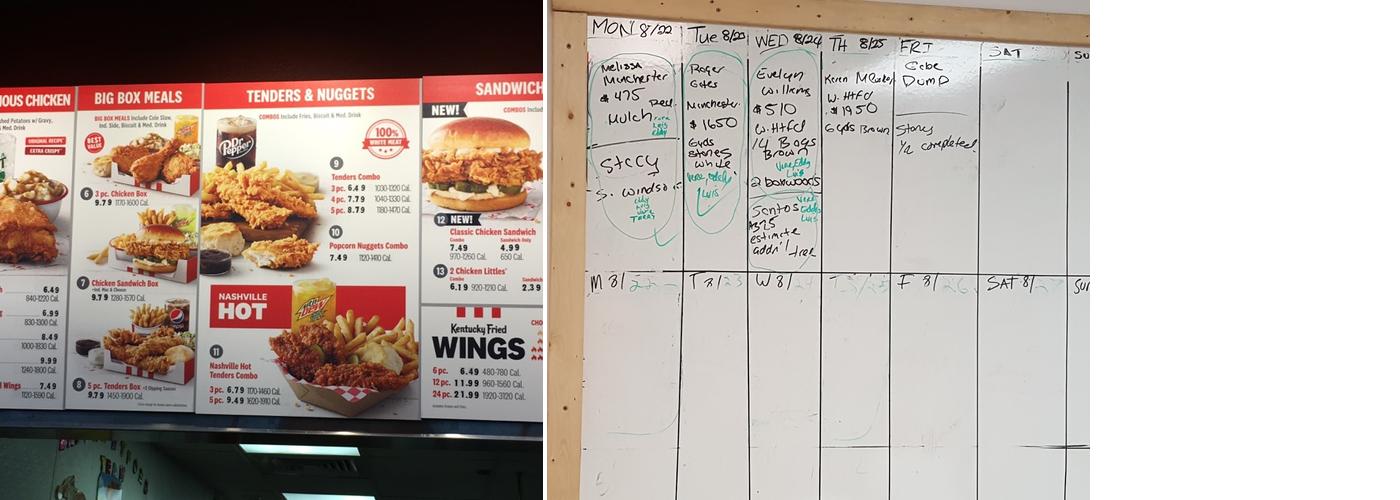 IOUS CHICKEN
ORIGINAL RECIPE
EXTRA CRISPY
6.49
840-1220 Cal.
6.99
830-1300 Cal.
8.49
1000-1830 Cal.
9.99
1240-1800 Cal.
Wings 7.49
1120-1590 Cal.
BIG BOX MEALS
BIG BOX MEALS Include Cole Slaw,
Ind. Side, Biscuit & Med. Drink
BEST VALUE
6 3 pc. Chicken Box
9.79 1170-1600 Cal.
7 Chicken Sandwich Box
9.79 1280-1570 Cal.
pepsi
8 5 pc. Tenders Box
9.79 1450-1900 Cal.
TENDERS & NUGGETS
COMBOS Include Fries, Biscuit & Med. Drink
Dr Pepper
100%
WHITE MEAT
9
Tenders Combo
3 pc. 6.49 1030-1320 Cal.
4 pc. 7.79 1040-1330 Cal.
5 pc. 8.79 1180-1470 Cal.
10
Popcorn Nuggets Combo
7.49 1120-1410 Cal.
NASHVILLE
HOT
11
Nashville Hot
Tenders Combo
3 pc. 6.79 1170-1460 Cal.
5 pc. 9.49 1620-1910 Cal.
SANDWICH
NEW!
COMBOS Includ
12 NEW!
Classic Chicken Sandwich
Combo Sandwich Only
7.49 4.99
970-1260 Cal. 650 Cal.
13 2 Chicken Littles
Combo Sandw
6.19 920-1210 Cal. 2.39
Kentucky Fried
WINGS
CHO
6 pc. 6.49 480-780 Cal.
12 pc. 11.99 960-1560 Cal.
24 pc. 21.99 1920-3120 Cal.
MON 8/22
Melissa
Manchester
$ 475
Red
Mulch
Luis
Eddy
Stacy
S. Windsor
Eddy
Luis
Vere
Tue 8/23
Roger
Gates
Manchester
$ 1650
Gyds
Stones
White
Vere, Eddy
Luis
WED 8/24
Evelyn
Williams
$ 510
W. Htfd
14 Bags
Brown
Vere, Eddy
Luis
2 boxwoods
Santos
Vere
Eddy
Luis
$325
estimate
addn'l tree
TH 8/25
Keren
W. Htfd
$ 1950
6 yds Brown
FRI
Gabe
Dump
Stones
1/2 completed
SAT
SU
M 8/22
T 8/23
W 8/
T 8/25
F 8/26
SAT 8/27
SUN